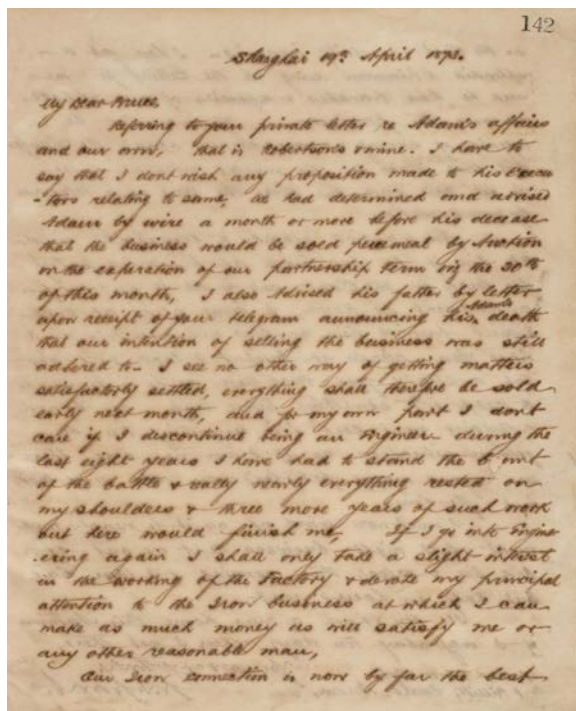 142
Shanghai 19th April 1873.
My Dear
Referring to your private letter re Adam's affairs
and our own, that is Robertson's & mine. I have to
say that I dont wish any proposition made to his Execu
-tors relating to same, We had determined and advised
Adam by wire a month or more before his decease
that the business would be sold piecemeal by Auction
on the experation of our partnership term viz the 30th
of this month, I also Advised his father by letter
upon receipt of your telegram announcing his Adam's death
that our intention of selling the business was still
adhered to. I see no other way of getting matters
satisfactorly settled, everything shall therefore be sold
early next month, and for my own part I dont
care if I discontinue being an Engineer. during the
last eight years I have had to stand the brunt
of the battle & really nearly everything rested on
my shoulders & three more years of such work
out here would finish me, If I go into Engine
-ering again I shall only take a slight interest
in the working of the Factory & devote my principal
attention to the Iron business at which I can
make as much money as will satisfy me or
any other reasonable man,
Our Iron connection is now by far the best